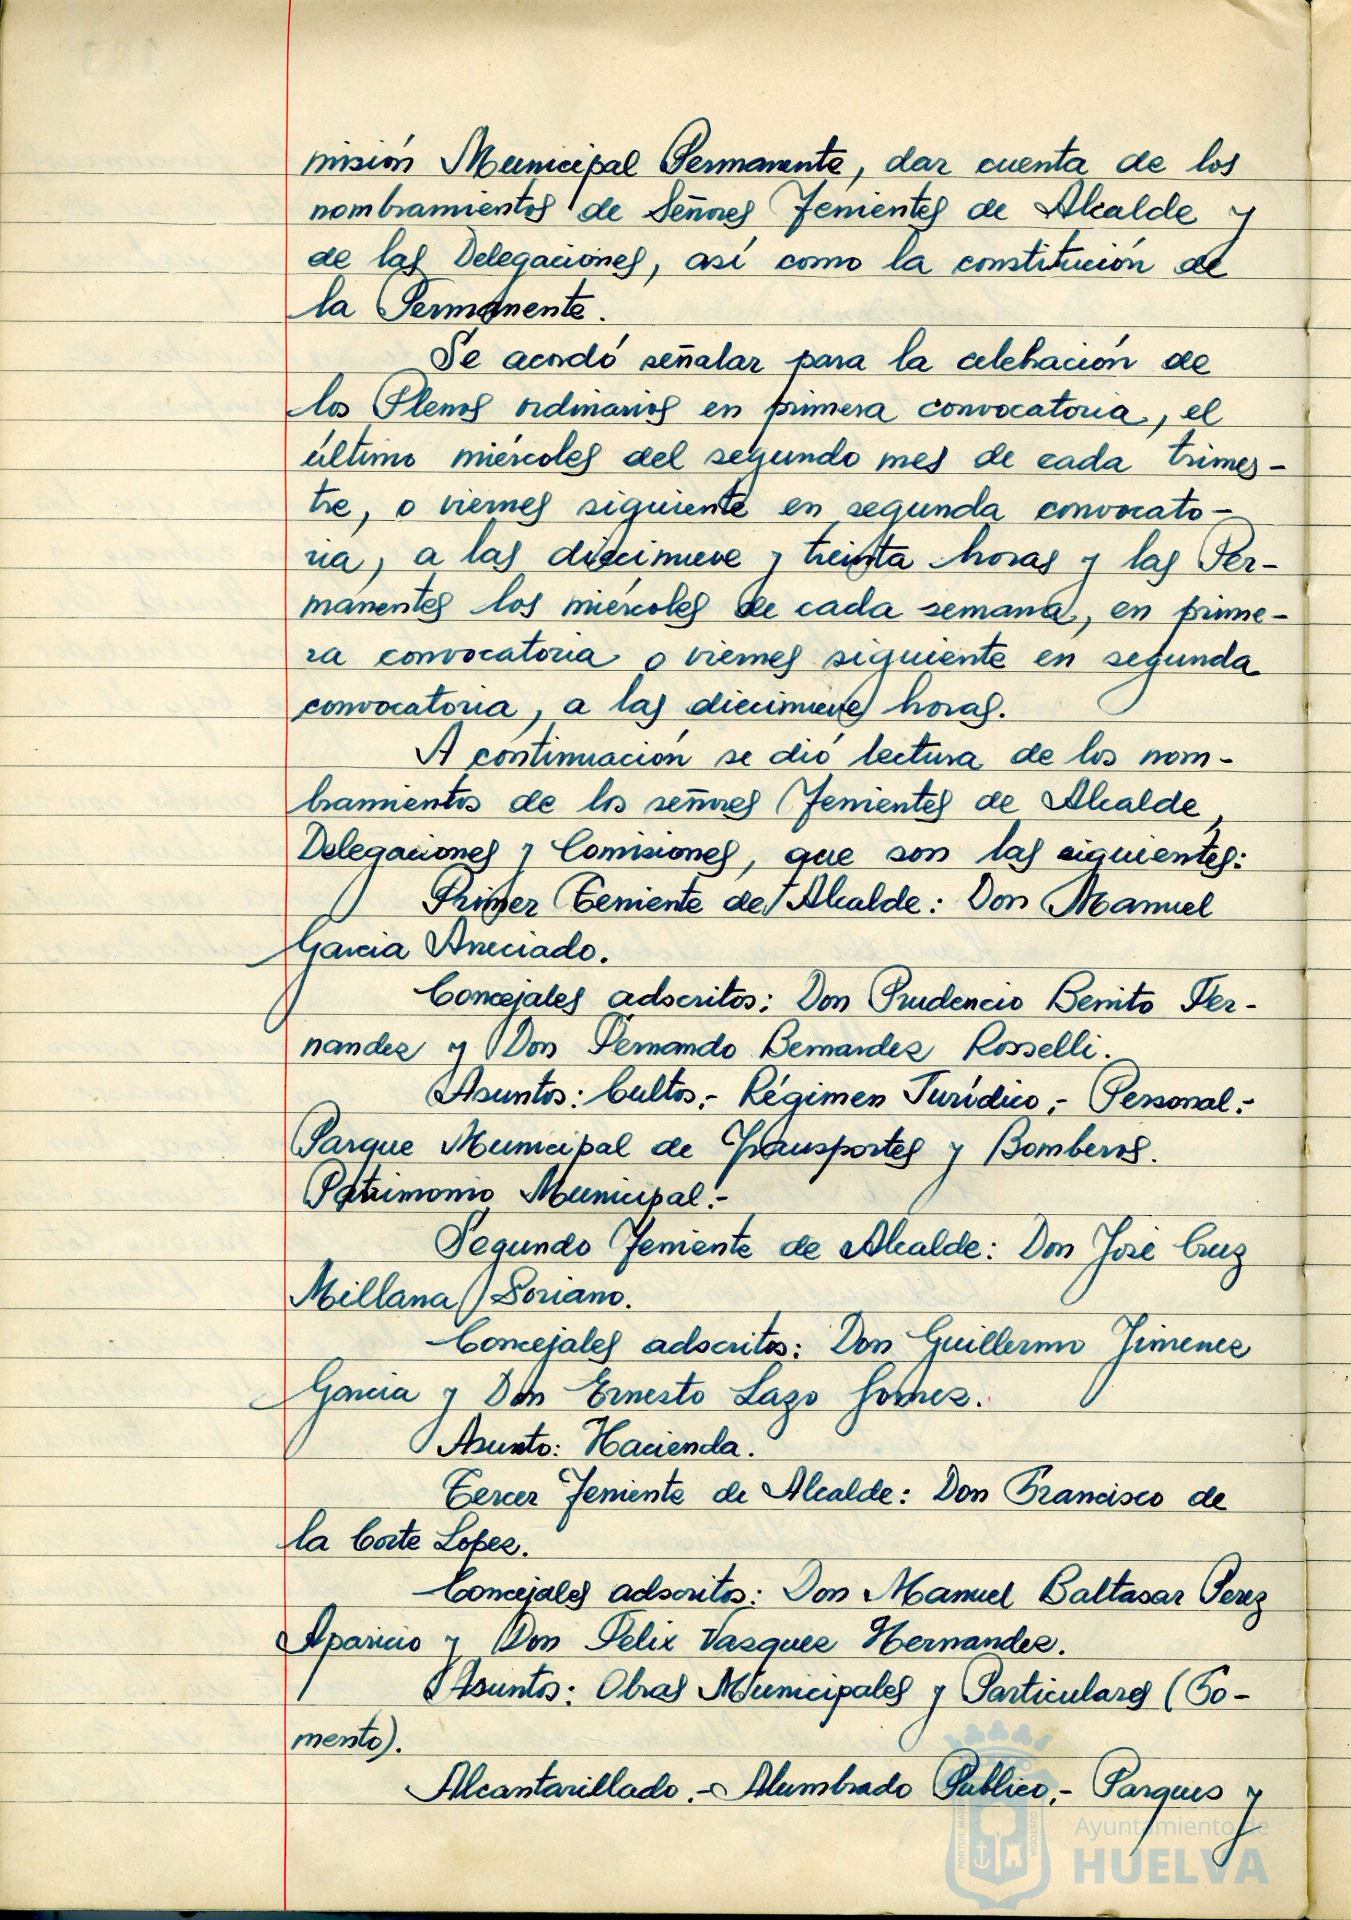 misión Municipal Permanente, dar cuenta de los
nombramientos de Señores Tenientes de Alcalde y
de las Delegaciones, así como la constitución de
la Permanente.
Se acordó señalar para la celebración de
los Plenos ordinarios en primera convocatoria, el
último miércoles del segundo mes de cada trimes-
tre, o viernes siguiente en segunda convocato-
ria, a las diecinueve y treinta horas y las Per-
manentes los miércoles de cada semana, en prime-
ra convocatoria o viernes siguiente en segunda
convocatoria, a las diecinueve horas.
A continuación se dió lectura de los nom-
bramientos de los señores Tenientes de Alcalde,
Delegaciones y Comisiones, que son las siguientes:
Primer Teniente de Alcalde: Don Manuel
Garcia Areciado.
Concejales adscritos: Don Prudencio Benito Fer-
nandez y Don Fernando Bernardez Rosselli.
Asuntos: Cultos.- Régimen Jurídico.- Personal.-
Parque Municipal de Transportes y Bomberos.
Patrimonio Municipal.-
Segundo Teniente de Alcalde: Don José Cruz
Millana Soriano.
Concejales adscritos: Don Guillermo Jimenez
Garcia y Don Ernesto Lazo Gomez.
Asunto: Hacienda.
Tercer Teniente de Alcalde: Don Francisco de
la Corte Lopez.
Concejales adscritos: Don Manuel Baltasar Perez
Aparicio y Don Felix Vazquez Hernandez.
Asuntos: Obras Municipales y Particulares (Fo-
mento).
Alcantarillado.- Alumbrado Publico.- Parques y
Ayuntamiento de
HUELVA